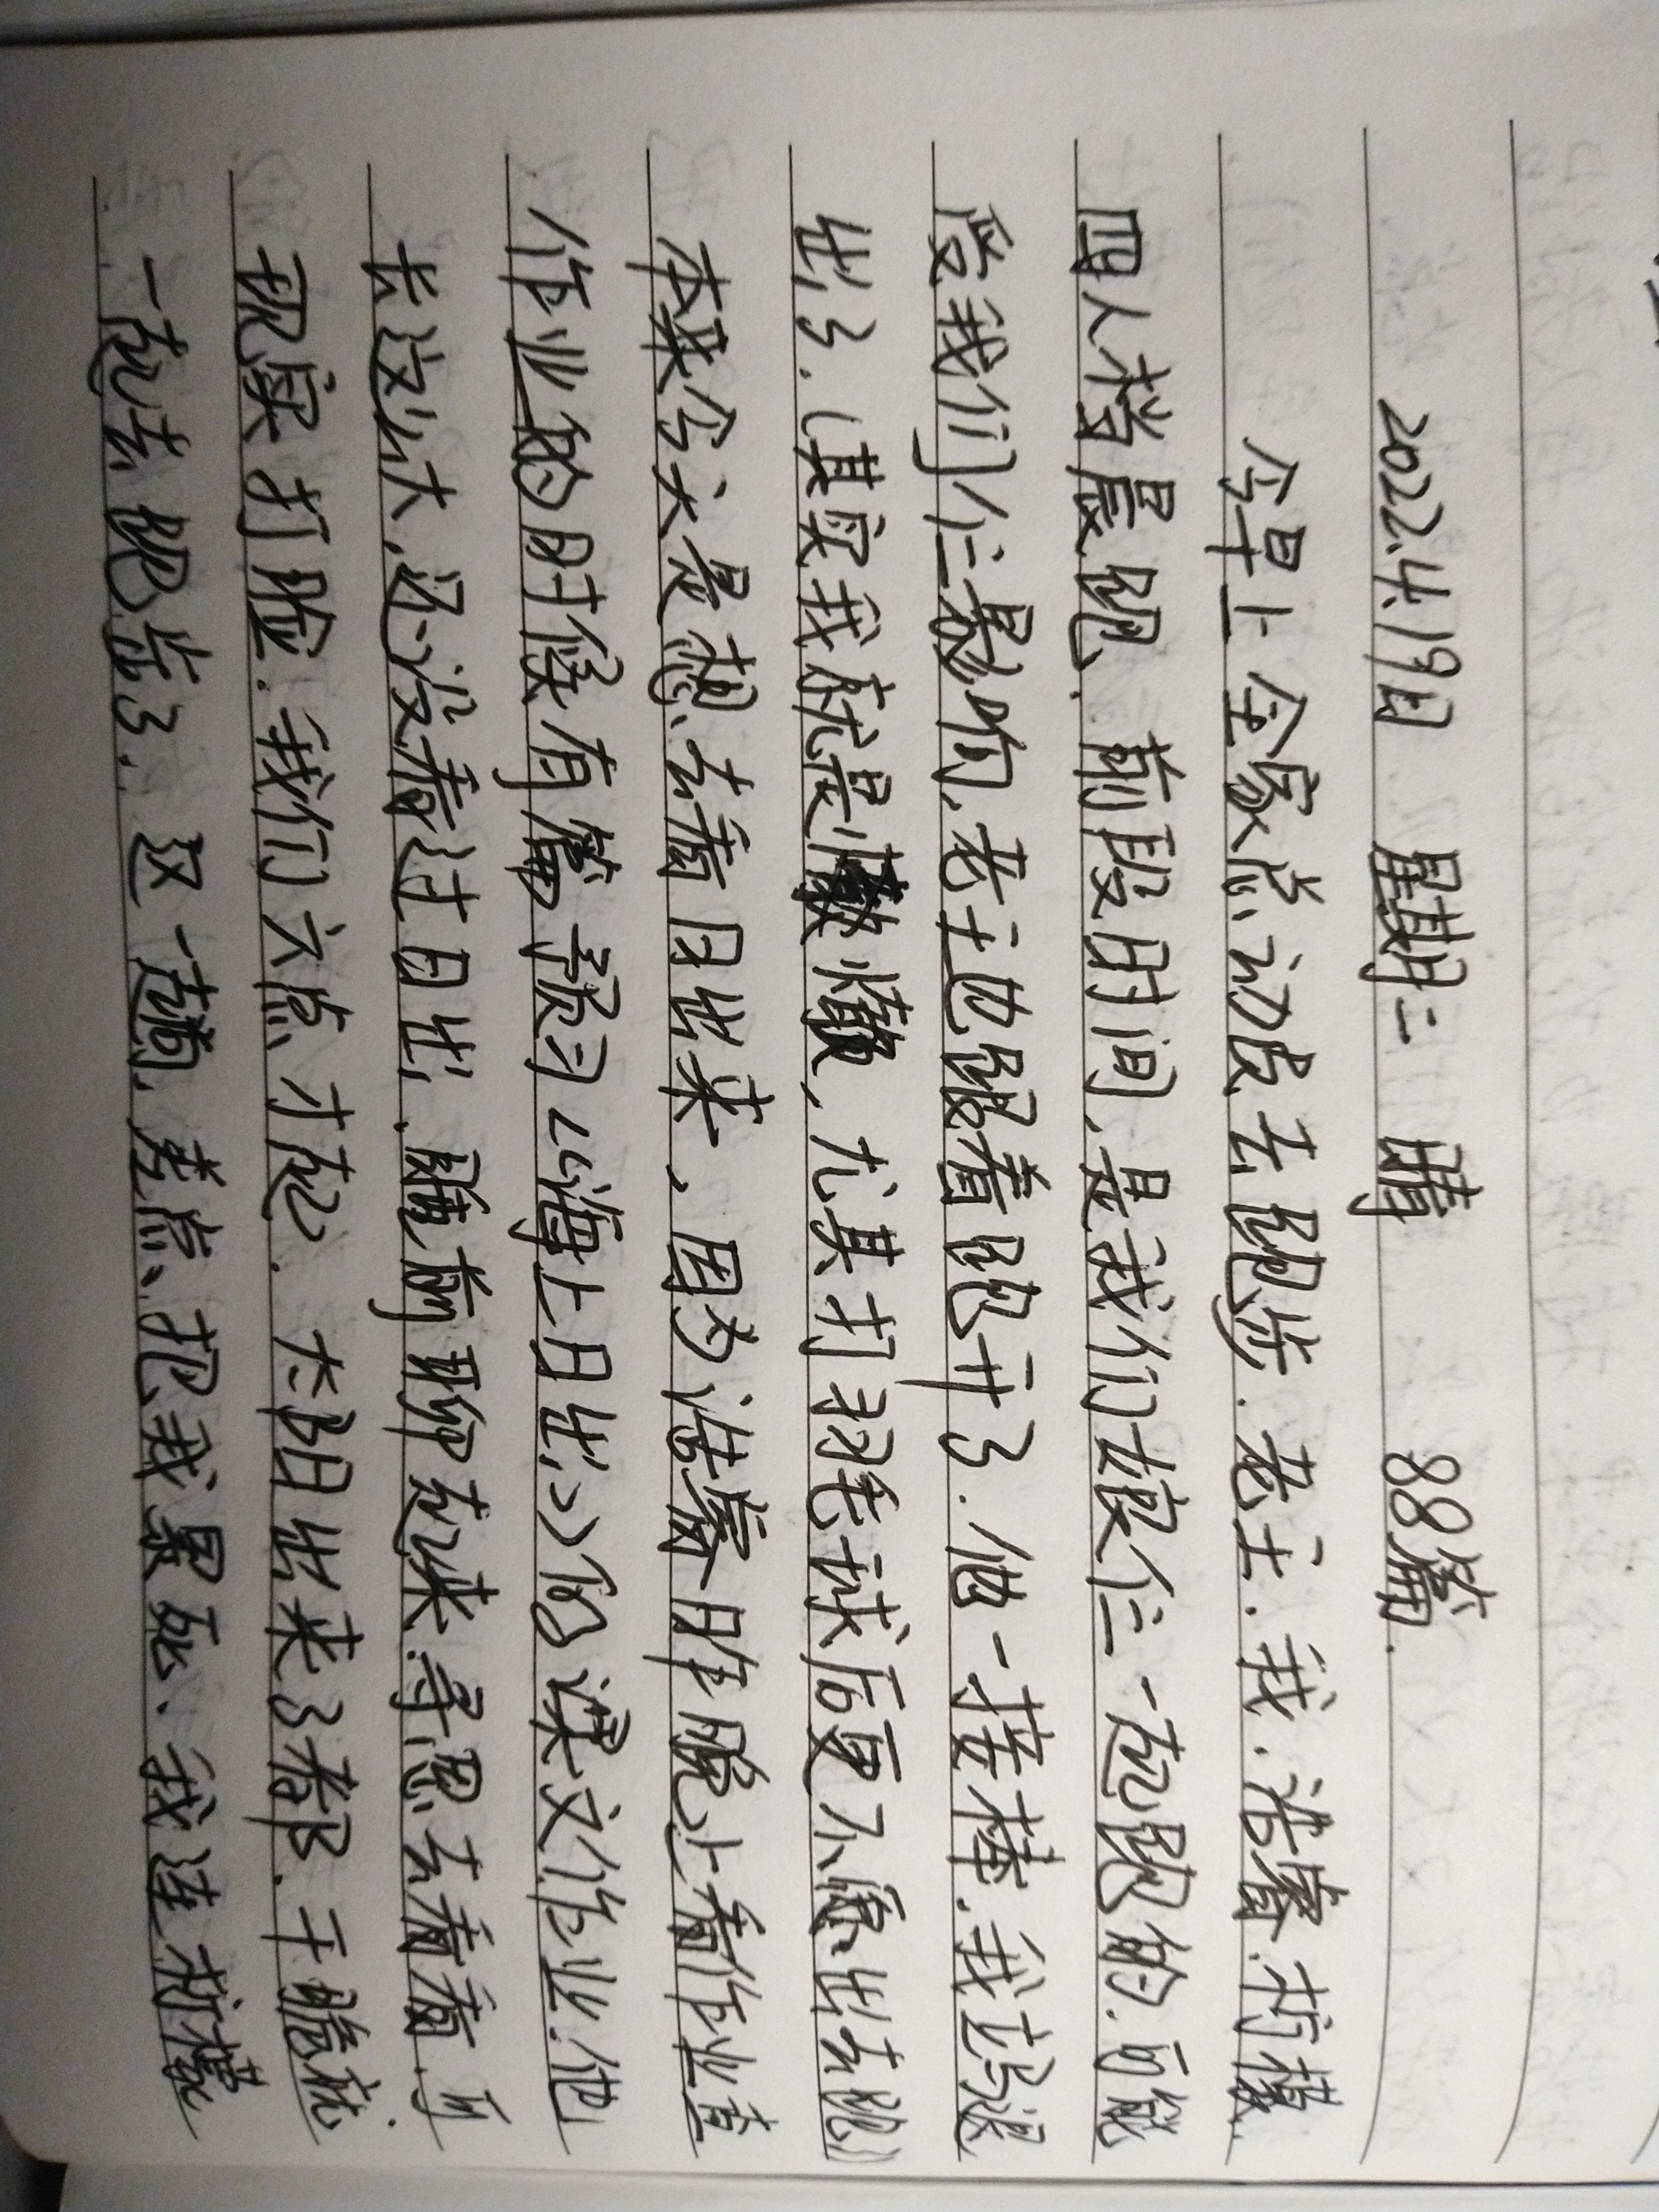 2022.4.19日 星期二 晴 88篇.
今早上全家总动员去跑步.老王.我.浩睿.梓檬
四人档晨跑.前段时间,是我们娘仨一起跑的.可能
受我们仨影响,老王也跟着跑开了.他一接棒.我主动退
出了.(其实我就是懒,尤其打羽毛球后更不愿出去跑)
本来今天是想去看日出来,因为浩睿昨晚上看作业直
作业的时候有篇预习《海上日出》的课文作业.他
长这么大,还没看过日出,睡前聊起来.寻思去看看.可
现实打脸.我们六点才起.太阳出来了都.干脆就
一起去跑步了.这一趟,差点把我累死.我连梓檬